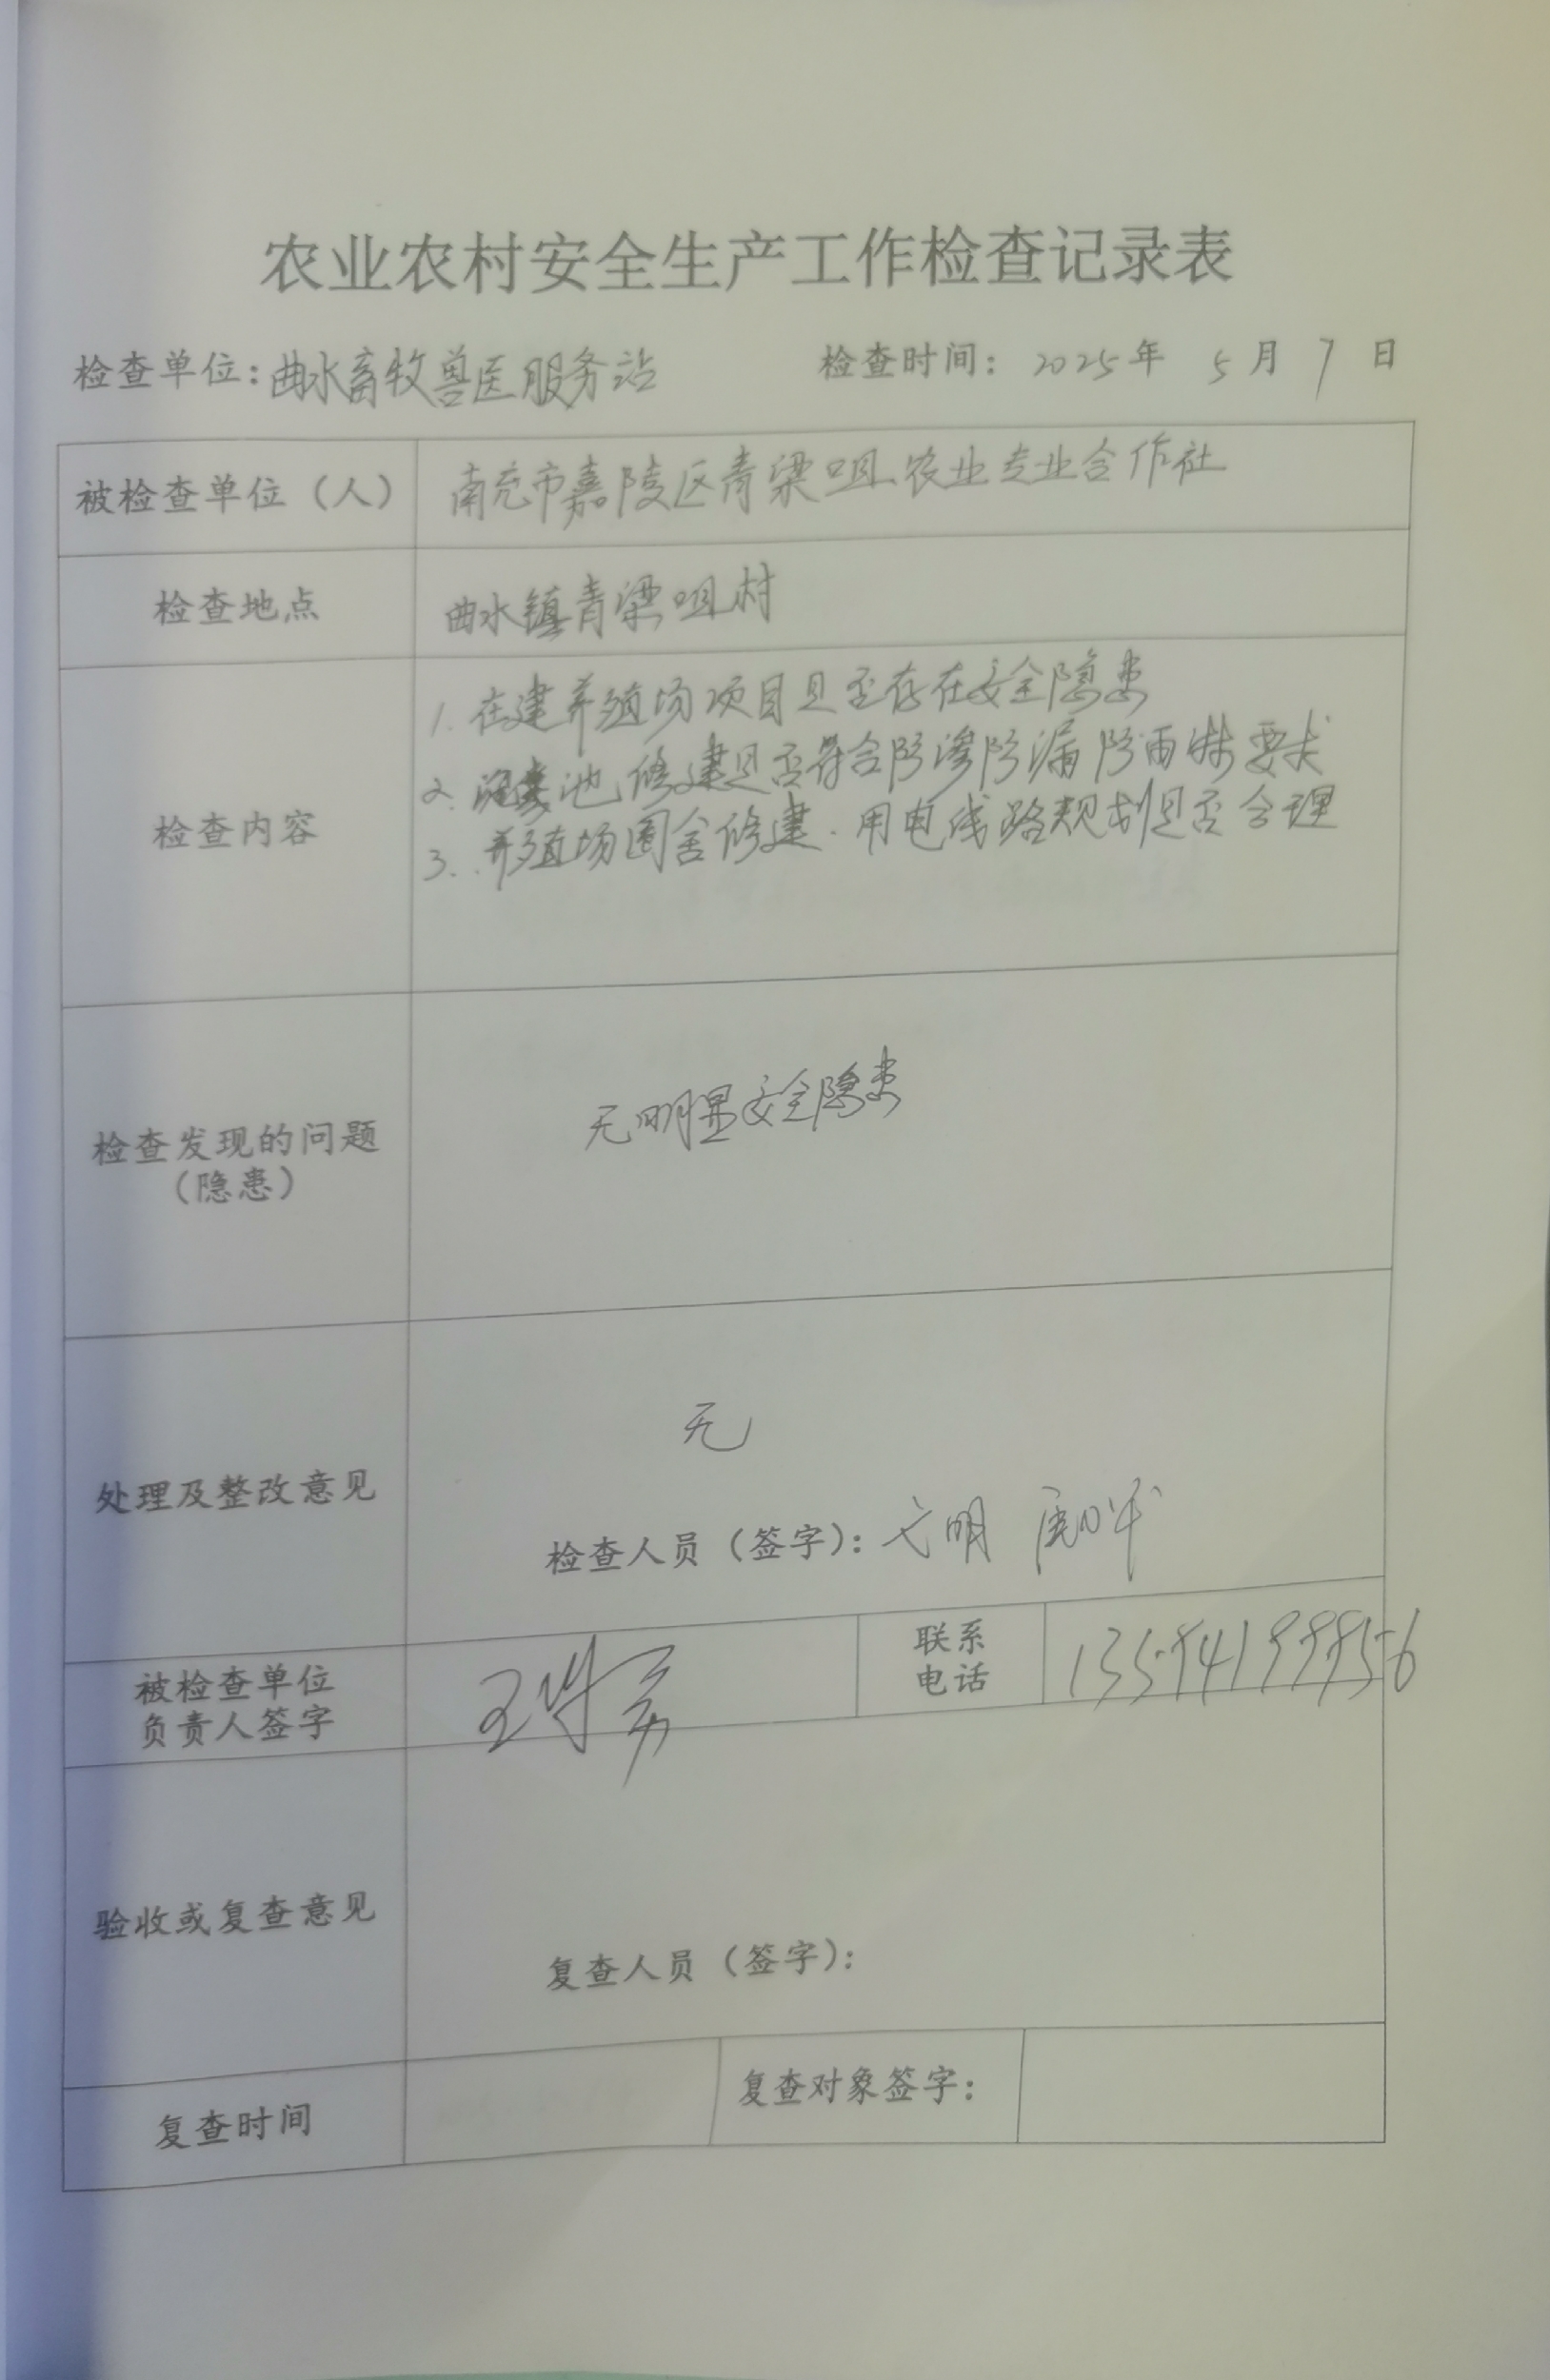 农业农村安全生产工作检查记录表
检查单位:曲水畜牧兽医服务站 检查时间: 2025年 5月 7日
被检查单位（人） 南充市嘉陵区青梁咀农业专业合作社
检查地点 曲水镇青梁咀村
1. 在建养殖场项目是否存在安全隐患
2. 池修建是否符合防渗防漏防雨淋要求
检查内容
3. 养殖场圈舍修建、用电线路规划是否合理
无明显安全隐患
检查发现的问题
（隐患）
无
处理及整改意见
检查人员（签字）: 明
被检查单位
负责人签字
王
联系
电话
验收或复查意见
复查人员（签字）:
复查时间 复查对象签字: